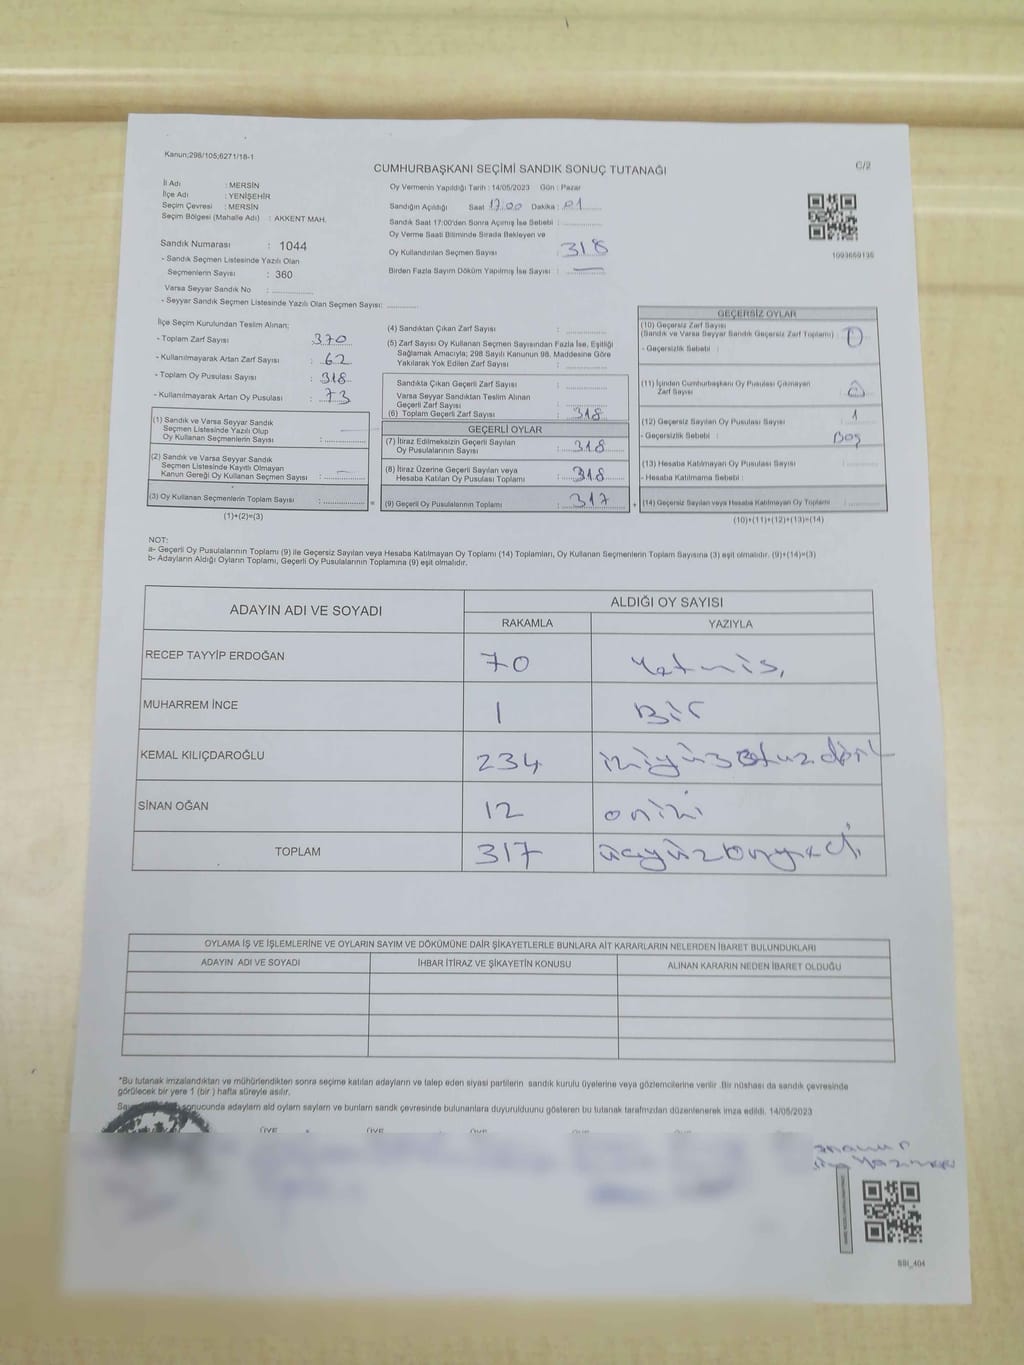 Kanun;298/105;6271/18-1
CUMHURBAŞKANI SEÇİMİ SANDIK SONUÇ TUTANAĞI
C/2
İl Adı : MERSİN
İlçe Adı : YENİŞEHİR
Seçim Çevresi : MERSİN
Seçim Bölgesi (Mahalle Adı) : AKKENT MAH.
Sandık Numarası : 1044
- Sandık Seçmen Listesinde Yazılı Olan
Seçmenlerin Sayısı : 360
Varsa Seyyar Sandık No : ..............
- Seyyar Sandık Seçmen Listesinde Yazılı Olan Seçmen Sayısı: ............
Oy Vermenin Yapıldığı Tarih : 14/05/2023 Gün : Pazar
Sandığın Açıldığı Saat 17.00 Dakika : 01
Sandık Saat 17:00'den Sonra Açımış İse Sebebi : ..............
Oy Verme Saati Bitiminde Sırada Bekleyen ve
Oy Kullandırılan Seçmen Sayısı : 318
Birden Fazla Sayım Döküm Yapılmış İse Sayısı : —
1093659135
İlçe Seçim Kurulundan Teslim Alınan;
- Toplam Zarf Sayısı : 370
- Kullanılmayarak Artan Zarf Sayısı : 62
- Toplam Oy Pusulası Sayısı : 318
- Kullanılmayarak Artan Oy Pusulası : 73
(1) Sandık ve Varsa Seyyar Sandık
Seçmen Listesinde Yazılı Olup
Oy Kullanan Seçmenlerin Sayısı :
(2) Sandık ve Varsa Seyyar Sandık
Seçmen Listesinde Kayıtlı Olmayan
Kanun Gereği Oy Kullanan Seçmen Sayısı : —
(3) Oy Kullanan Seçmenlerin Toplam Sayısı : ............ =
(1)+(2)=(3)
(4) Sandıktan Çıkan Zarf Sayısı : ............
(5) Zarf Sayısı Oy Kullanan Seçmen Sayısından Fazla İse, Eşitliği
Sağlamak Amacıyla; 298 Sayılı Kanunun 98. Maddesine Göre
Yakılarak Yok Edilen Zarf Sayısı : ............
Sandıkta Çıkan Geçerli Zarf Sayısı : ............
Varsa Seyyar Sandıktan Teslim Alınan
Geçerli Zarf Sayısı : ............
(6) Toplam Geçerli Zarf Sayısı : 318
GEÇERLİ OYLAR
(7) İtiraz Edilmeksizin Geçerli Sayılan
Oy Pusulalarının Sayısı : 318
(8) İtiraz Üzerine Geçerli Sayılan veya
Hesaba Katılan Oy Pusulası Toplamı : 318
(9) Geçerli Oy Pusulalarının Toplamı : 317 +
GEÇERSİZ OYLAR
(10) Geçersiz Zarf Sayısı
(Sandık ve Varsa Seyyar Sandık Geçersiz Zarf Toplamı) : 0
- Geçersizlik Sebebi :
(11) İçinden Cumhurbaşkanı Oy Pusulası Çıkmayan
Zarf Sayısı :
(12) Geçersiz Sayılan Oy Pusulası Sayısı : 1
- Geçersizlik Sebebi : Boş
(13) Hesaba Katılmayan Oy Pusulası Sayısı : ............
- Hesaba Katılmama Sebebi :
(14) Geçersiz Sayılan veya Hesaba Katılmayan Oy Toplamı : ............
(10)+(11)+(12)+(13)=(14)
NOT:
a- Geçerli Oy Pusulalarının Toplamı (9) ile Geçersiz Sayılan veya Hesaba Katılmayan Oy Toplamı (14) Toplamları, Oy Kullanan Seçmenlerin Toplam Sayısına (3) eşit olmalıdır. (9)+(14)=(3)
b- Adayların Aldığı Oyların Toplamı, Geçerli Oy Pusulalarının Toplamına (9) eşit olmalıdır.
ADAYIN ADI VE SOYADI ALDIĞI OY SAYISI
RAKAMLA YAZIYLA
RECEP TAYYİP ERDOĞAN 70 Yetmiş,
MUHARREM İNCE 1 Bir
KEMAL KILIÇDAROĞLU 234 ikiyüzotuzdört
SİNAN OĞAN 12 oniki
TOPLAM 317 üçyüzonyedi
OYLAMA İŞ VE İŞLEMLERİNE VE OYLARIN SAYIM VE DÖKÜMÜNE DAİR ŞİKAYETLERLE BUNLARA AİT KARARLARIN NELERDEN İBARET BULUNDUKLARI
ADAYIN ADI VE SOYADI İHBAR İTİRAZ VE ŞİKAYETİN KONUSU ALINAN KARARIN NEDEN İBARET OLDUĞU
"Bu tutanak imzalandıktan ve mühürlendikten sonra seçime katılan adayların ve talep eden siyasi partilerin sandık kurulu üyelerine veya gözlemcilerine verilir .Bir nüshası da sandık çevresinde
görülecek bir yere 1 (bir ) hafta süreyle asılır.
sonucunda adayların ald oyların sayların ve bunların sandk çevresinde bulunanlara duyurulduunu gösteren bu tutanak tarafmzdan düzenlenerek imza edildi. 14/05/2023
ÜYE ÜYE
SSI_404